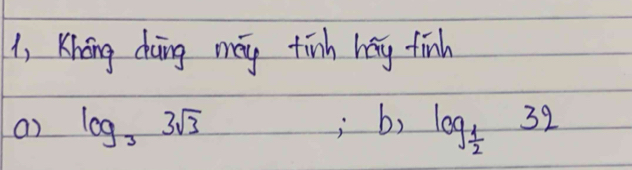 1, Không dùng máy tính hãy tính
a) log₃ 3√3 ; b, log_{1/2} 32